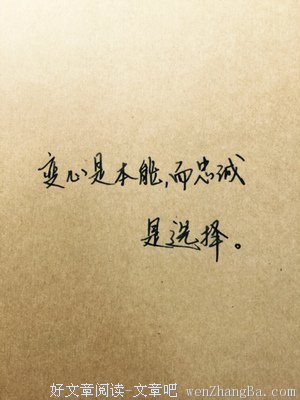 变心是本能,而忠诚
是选择。
好文章阅读-文章吧 wenZhangBa.com